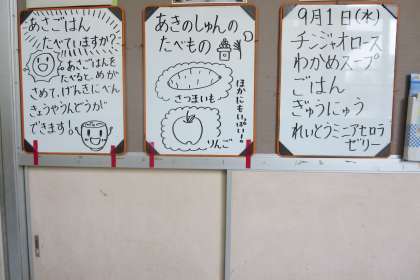 あさごはん
たべていますか?
あさごはんを
たべると、めが
さめて、げんきにべん
きょうやうんどうが
できます!
あきのしゅんの
たべもの
さつまいも
りんご
ほかにもいっぱい!
9月1日(水)
チンジャオロース
わかめスープ
ごはん
ぎゅうにゅう
れいとうミニアセロラ
ゼリー